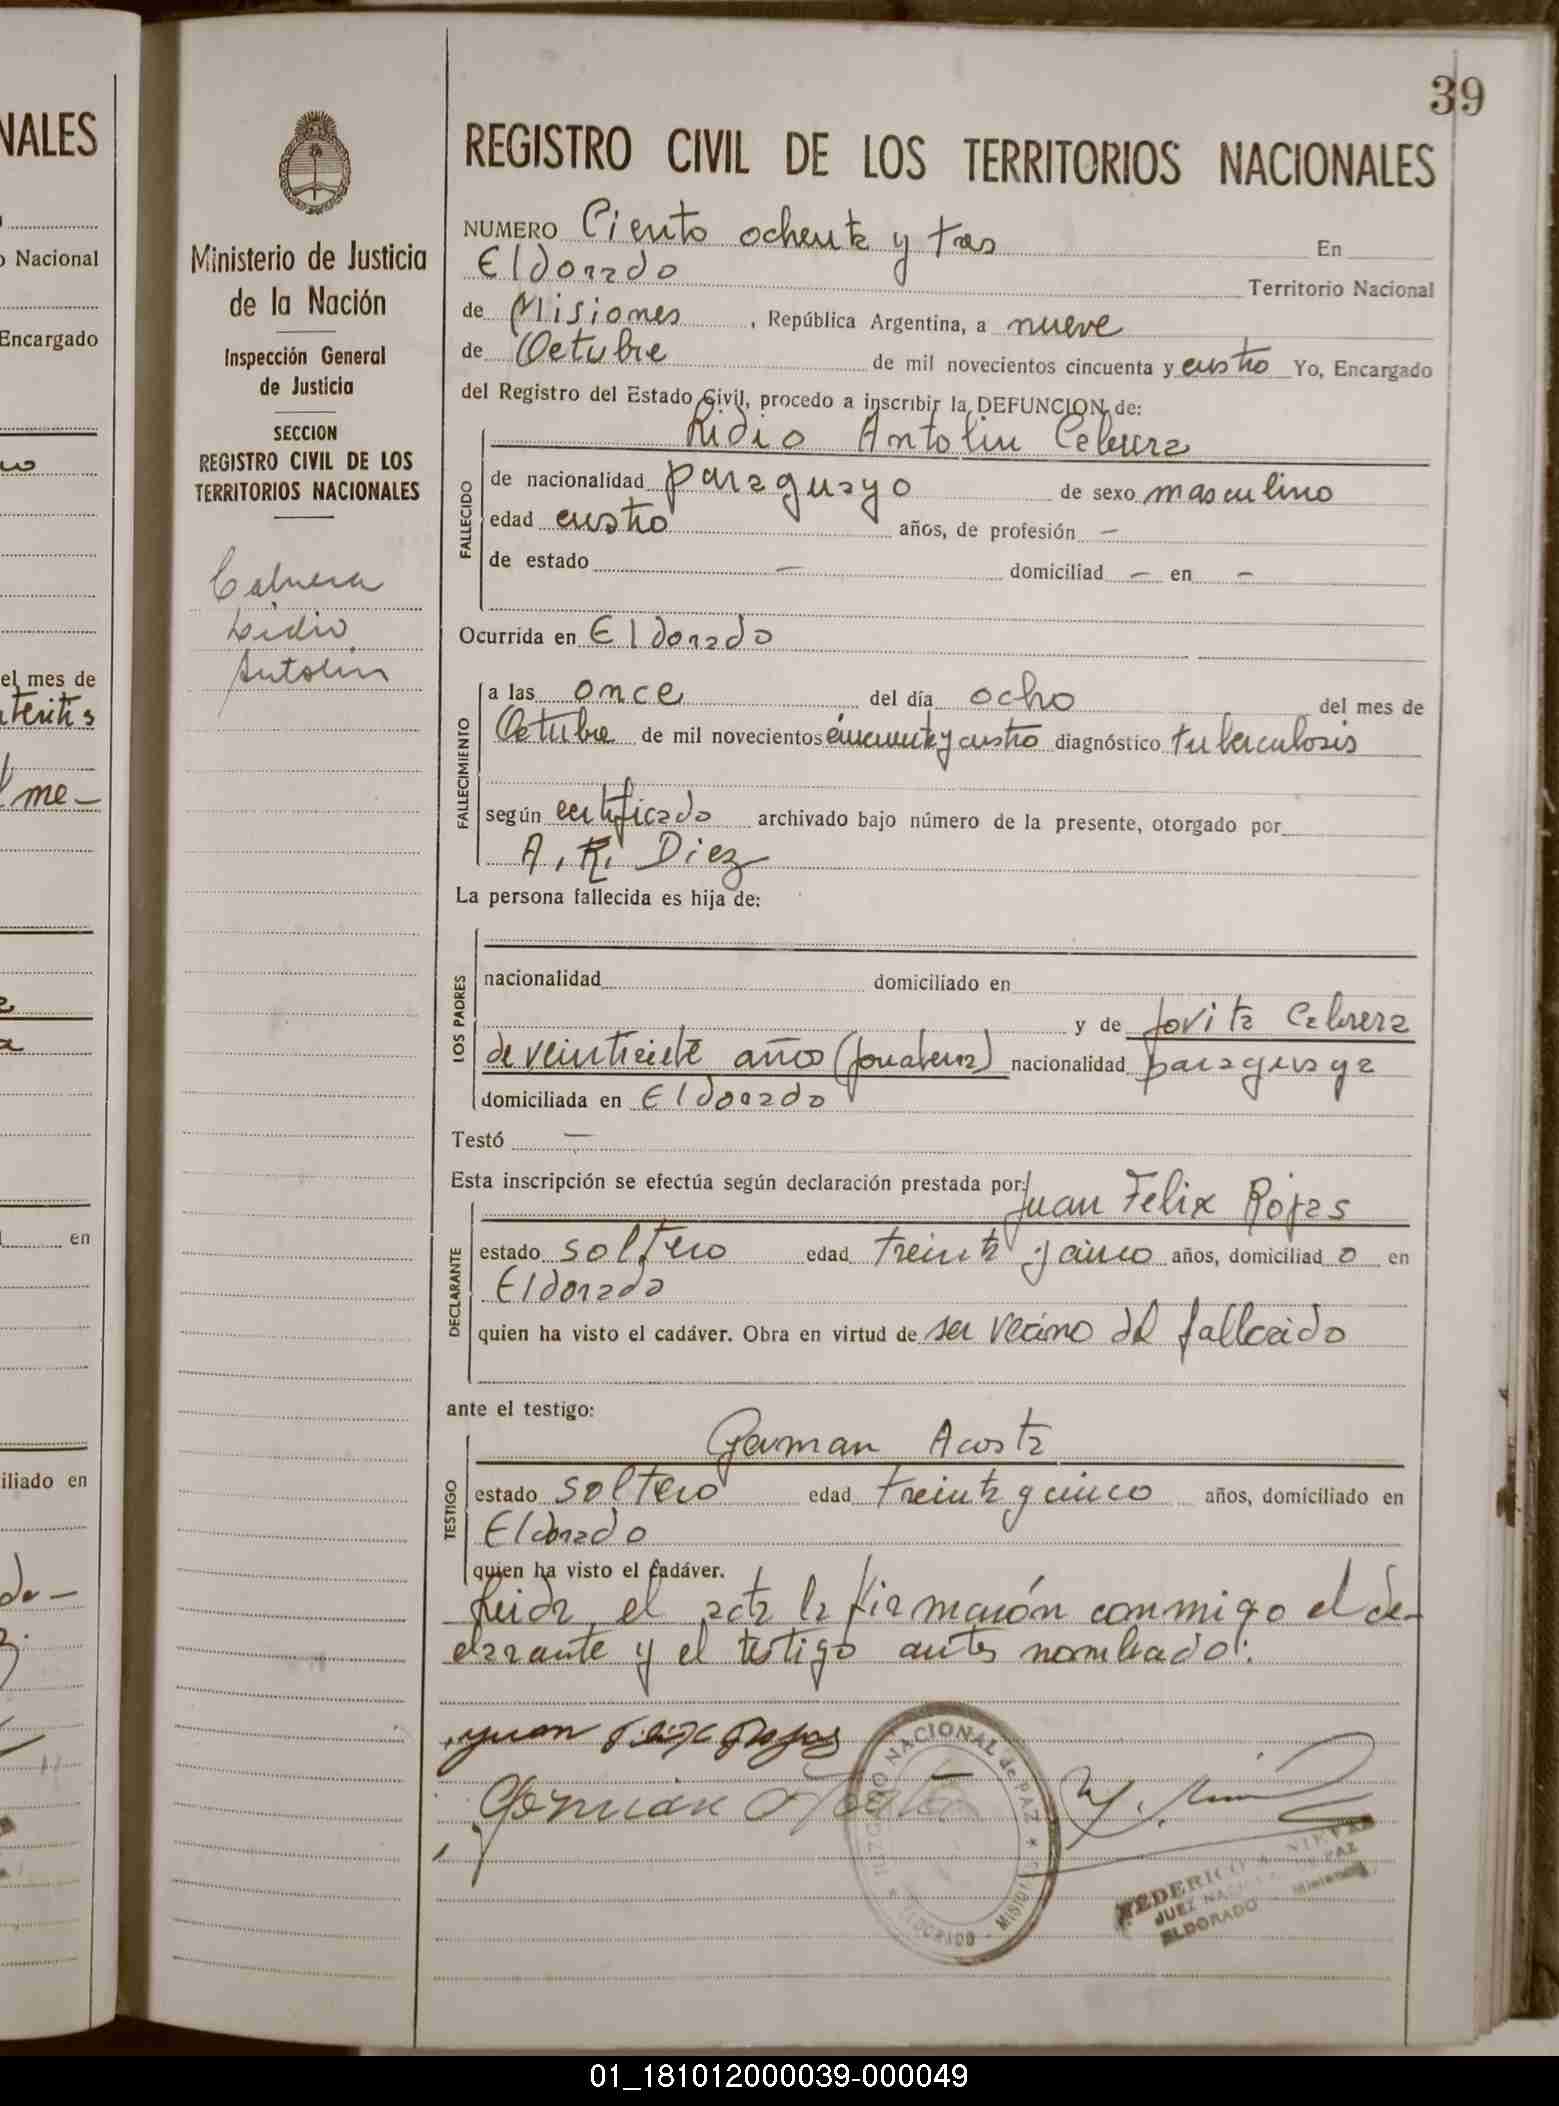 39
NALES
Nacional
Encargado
el mes de
me—
en
iliado en
Ministerio de Justicia
de la Nación
Inspección General
de Justicia
SECCION
REGISTRO CIVIL DE LOS
TERRITORIOS NACIONALES
Cabrera
Lidio
Antolin
REGISTRO CIVIL DE LOS TERRITORIOS NACIONALES
NUMERO Ciento ochenta y tres En
Eldorado Territorio Nacional
de Misiones, República Argentina, a nueve
de Octubre de mil novecientos cincuenta y cuatro Yo, Encargado
del Registro del Estado Civil, procedo a inscribir la DEFUNCION de:
Lidio Antolin Cabrera
FALLECIDO
de nacionalidad paraguayo de sexo masculino
edad cuatro años, de profesión —
de estado — domiciliad — en —
Ocurrida en Eldorado
FALLECIMIENTO
a las once del día ocho del mes de
Octubre de mil novecientos cincuenta y cuatro diagnóstico tuberculosis
según certificado archivado bajo número de la presente, otorgado por
A. R. Diez
La persona fallecida es hija de:
LOS PADRES
nacionalidad domiciliado en
y de Jovita Cabrera
de veintisiete años (jornalera) nacionalidad paraguaya
domiciliada en Eldorado
Testó —
Esta inscripción se efectúa según declaración prestada por:
Juan Felix Rojas
DECLARANTE
estado soltero edad treinta y cinco años, domiciliad o en
Eldorado
quien ha visto el cadáver. Obra en virtud de ser vecino del fallecido
ante el testigo:
German Acosta
TESTIGO
estado soltero edad treinta y cinco años, domiciliado en
Eldorado
quien ha visto el cadáver.
Leida el acta la firmarón conmigo el de-
clarante y el testigo antes nombrado:
Juan Felix Rojas
German Acosta
JUZGADO NACIONAL de PAZ * ELDORADO - MISIONES *
FEDERICO A. NIEVA
JUEZ NACIONAL DE PAZ
ELDORADO - Misiones
01_181012000039-000049